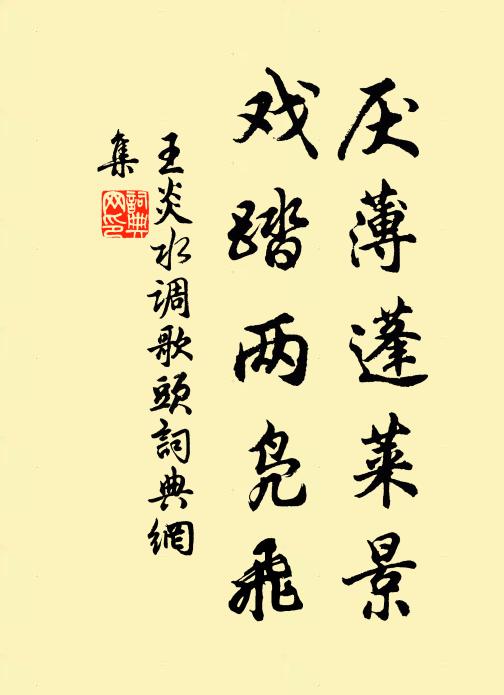 厌薄蓬莱景
戏踏两凫飞
王炎水调歌頭詞典網
集
詞典網印